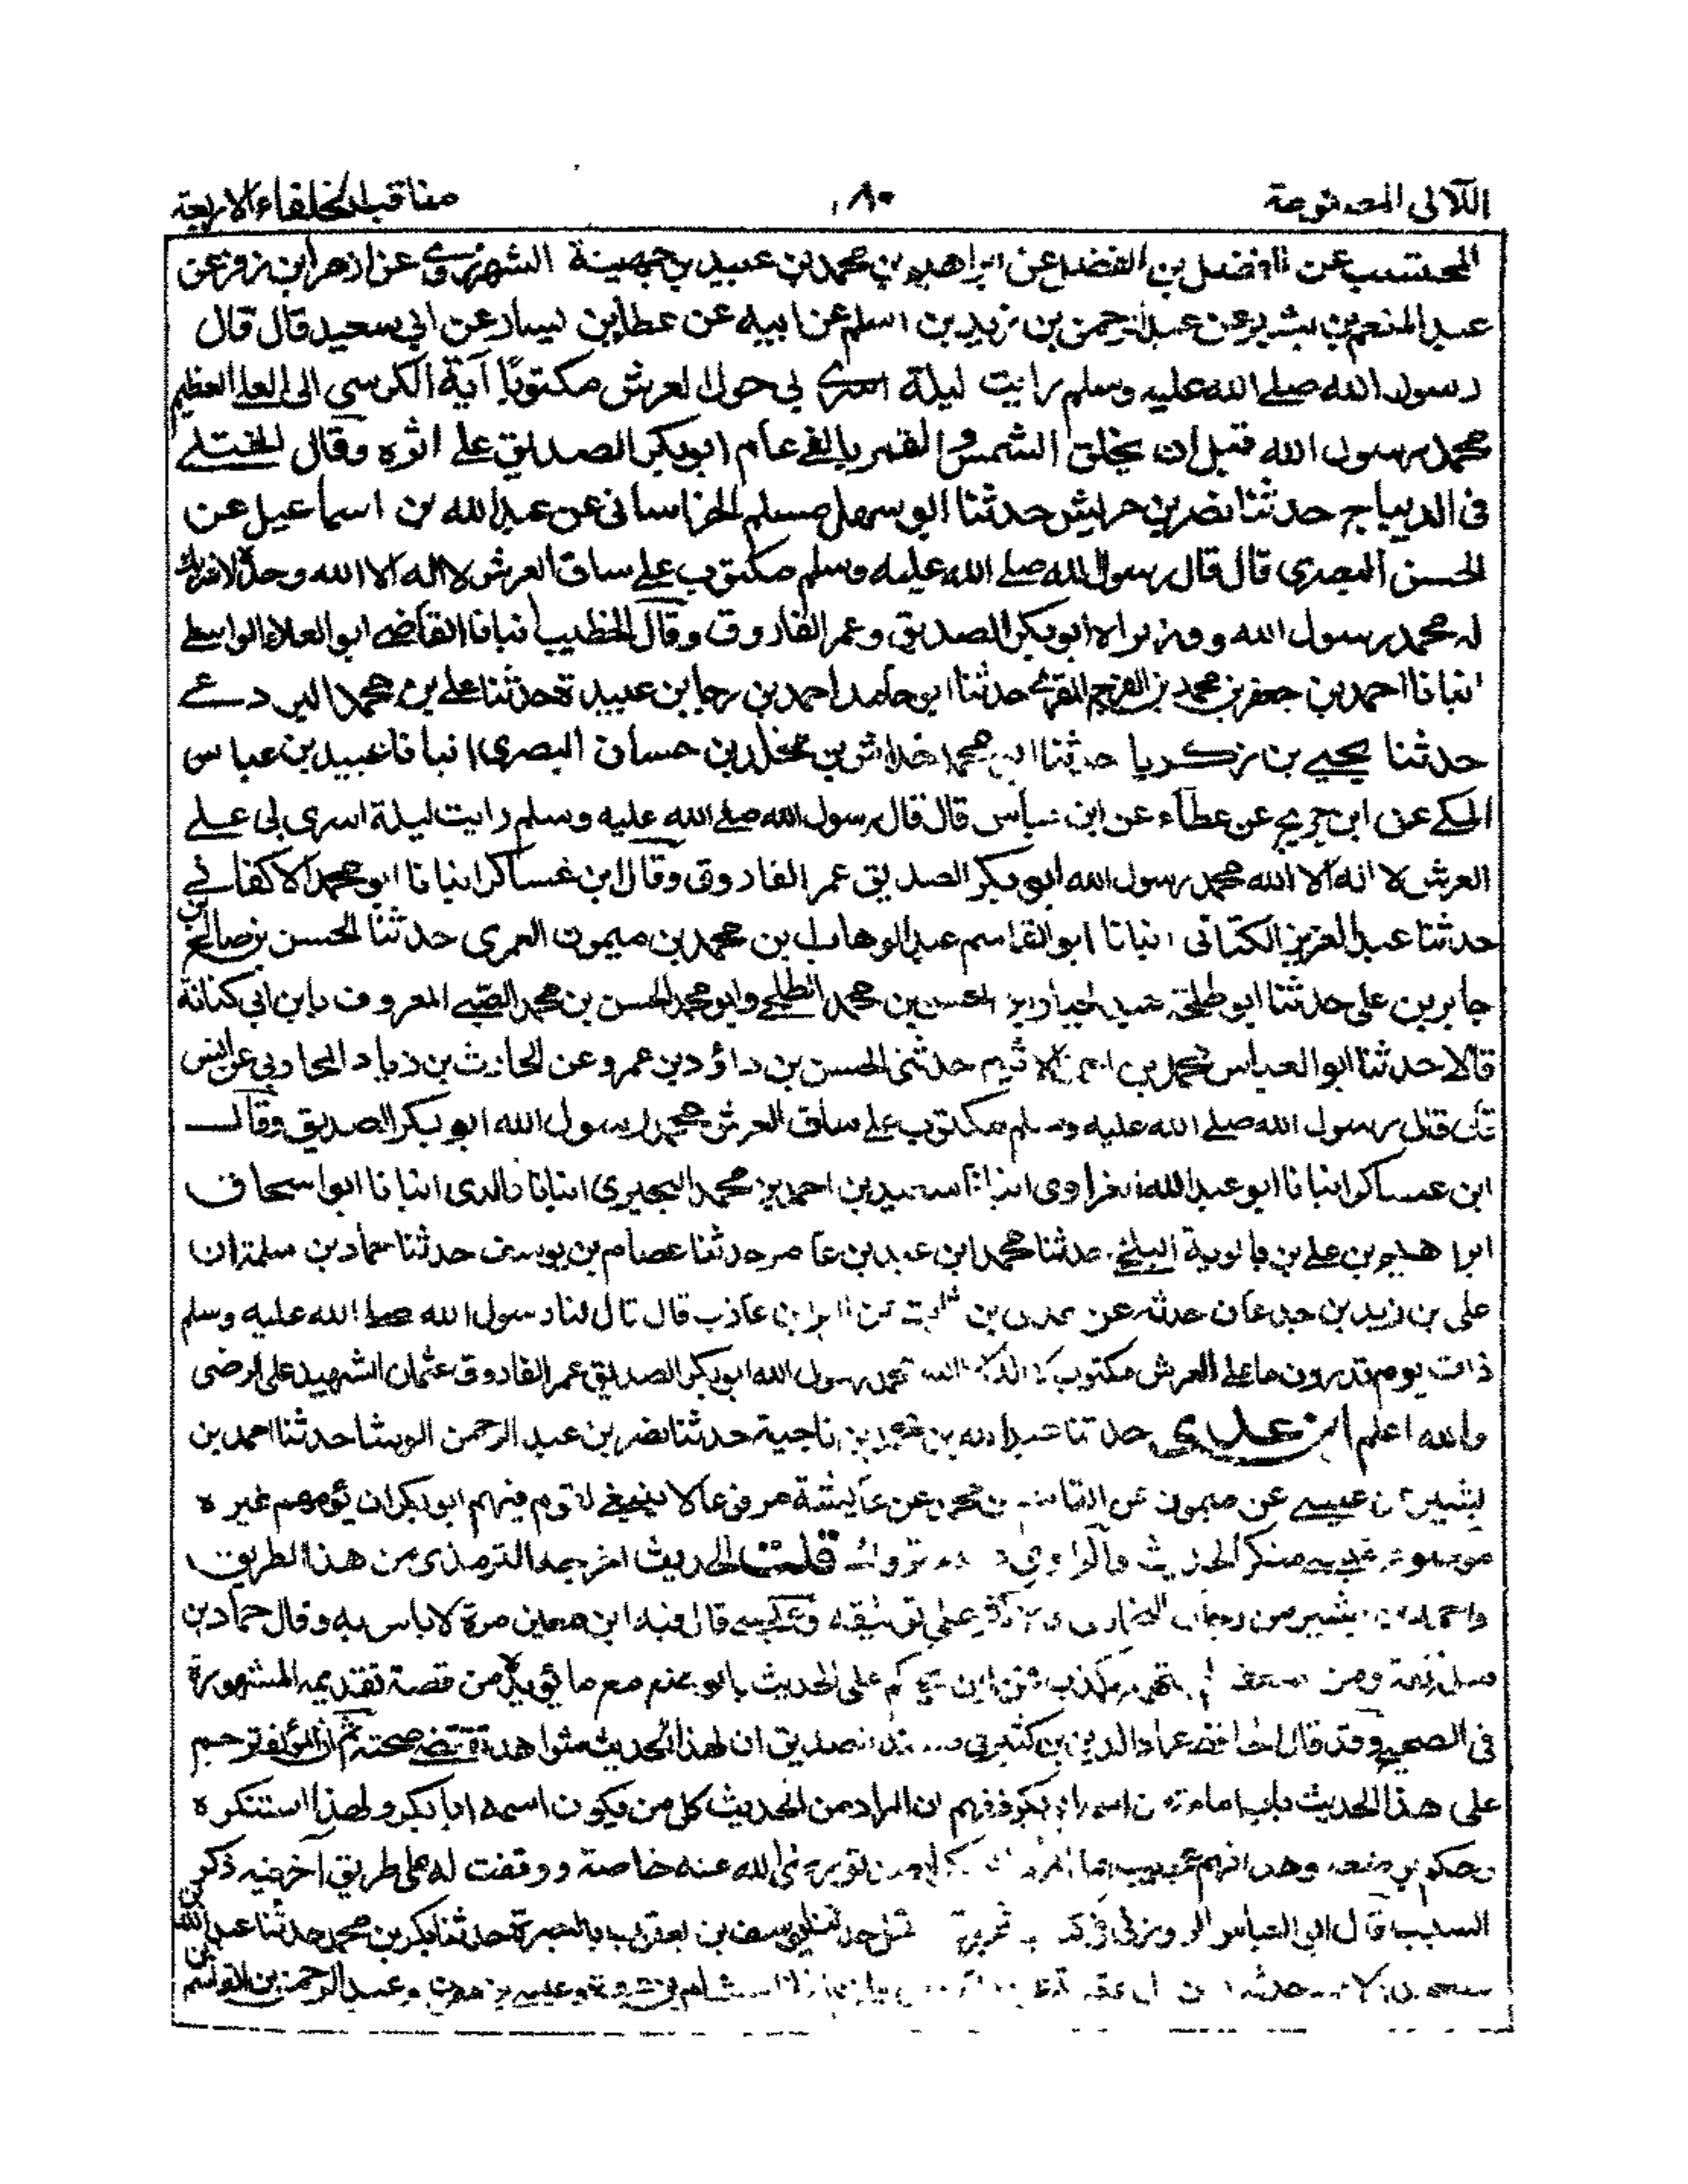 اللآلى المصنوعة ١٨٠ مناقب الخلفاء الاربعة
المحتسب عن الفضل بن الفضل عن ابراهيم بن محمد بن عبيد بن جهينة الشهرزوري عن ازهر ابن زفر عن
عبد المنعم بن بشير عن عبد الرحمن بن زيد بن اسلم عن ابيه عن عطا بن يسار عن ابي سعيد قال قال
رسول الله صلے الله عليه وسلم رايت ليلة اسرى بي حول العرش مكتوبًا آية الكرسي الى العلے العظيم
محمد رسول الله قبل ان يخلق الشمس والقمر بالفے عام ابو بكر الصديق علے اثره وقال الختلے
فى الديباج حدثنا نصر بن حريش حدثنا ابو سهل مسلم الخراسانى عن عبد الله بن اسماعيل عن
الحسن البصرى قال قال رسول الله صلے الله عليه وسلم مكتوب علے ساق العرش لا اله الا الله وحده لا شريك
له محمد رسول الله ووزيراه ابو بكر الصديق وعمر الفاروق وقال الخطيب انبانا القاضے ابو العلاء الواسطے
انبانا احمد بن جعفر بن محمد بن الفرج المقرئ حدثنا ابو حامد احمد بن رجا بن عبيدة حدثنا علے بن محمد البردعے
حدثنا يحيے بن زكريا حدثنا ابو محمد خداش بن مخلد بن حسان البصرى انبانا عبيد بن عباس
المكے عن ابن جريج عن عطاء عن ابن عباس قال قال رسول الله صلے الله عليه وسلم رايت ليلة اسرى بى علے
العرش لا اله الا الله محمد رسول الله ابو بكر الصديق عمر الفاروق وقال ابن عساكر انبانا ابو محمد الاكفانے
حدثنا عبد العزيز الكتانى انبانا ابو القاسم عبد الوهاب بن محمد بن ميمون العمرى حدثنا الحسن بن صالح بن
جابر بن على حدثنا ابو طلحة عبد الجبار بن الحسن بن محمد الطلحے وابو محمد الحسن بن محمد الضبے المعروف بابن ابي كنانة
قالا حدثنا ابو العباس محمد بن حدثنى الحسن بن داؤد بن عمرو عن الحارث بن زياد المحاربي عن انس
قال قال رسول الله صلے الله عليه وسلم مكتوب علے ساق العرش محمد رسول الله ابو بكر الصديق وقال
ابن عساكر انبانا ابو عبد الله الفراوى انبانا سعيد بن احمد بن محمد البحيرى انبانا والدى انبانا ابو اسحاق
ابراهيم بن علے بن بالوية البلخے حدثنا محمد ابن عبد بن عامر حدثنا عصام بن يوسف حدثنا حماد بن سلمة ان
على بن زيد بن جدعان حدثه عن عدى بن ثابت عن البراء بن عازب قال قال لنا رسول الله صلے الله عليه وسلم
ذات يوم تدرون ما علے العرش مكتوب لا اله الا الله محمد رسول الله ابو بكر الصديق عمر الفاروق عثمان الشهيد على الرضى
والله اعلم ابن عدى حدثنا عبد الله بن محمد بن ناجية حدثنا نصر بن عبد الرحمن الوشا حدثنا احمد بن
بشير عن عيسے عن ميمون عن القاسم بن محمد عن عايشة مرفوعا لا ينبغے لقوم فيهم ابو بكر ان يؤمهم غيره
موضوع عيسے منكر الحديث متروك قلت الحديث اخرجه الترمذى من هذا الطريق
واحمد بن بشير من رجال البخارى والاكثر على توثيقه وعيسے قال فيه ابن معين مرة لا باس به وقال حماد بن
سلمة ثقة ومن ضعفه لم يتهمه بكذب فمن اين يحكم على الحديث بالوضع مع ما يؤيده من قصة تقديمه المشهورة
فى الصحيح وقد قال الحافظ عماد الدين بن كثير فى مسند الصديق ان لهذا الحديث شواهد تقتضے صحته ثم ان المؤلف ترجم
على هذا الحديث باب امامة من اسمه ابو بكر ففهم ان المراد من الحديث كل من يكون اسمه ابا بكر ولهذا استنكره
وحكم بوضعه وهذا فهم عجيب رضى الله عنه خاصة ووقفت له على طريق آخر فيه ذكر
السبب قال ابو العباس الزوزنى فى يوسف بن يعقوب بالبصرة حدثنا بكر بن محمد حدثنا عبد الله بن
حدثنا وعبد الرحمن بن القاسم بن